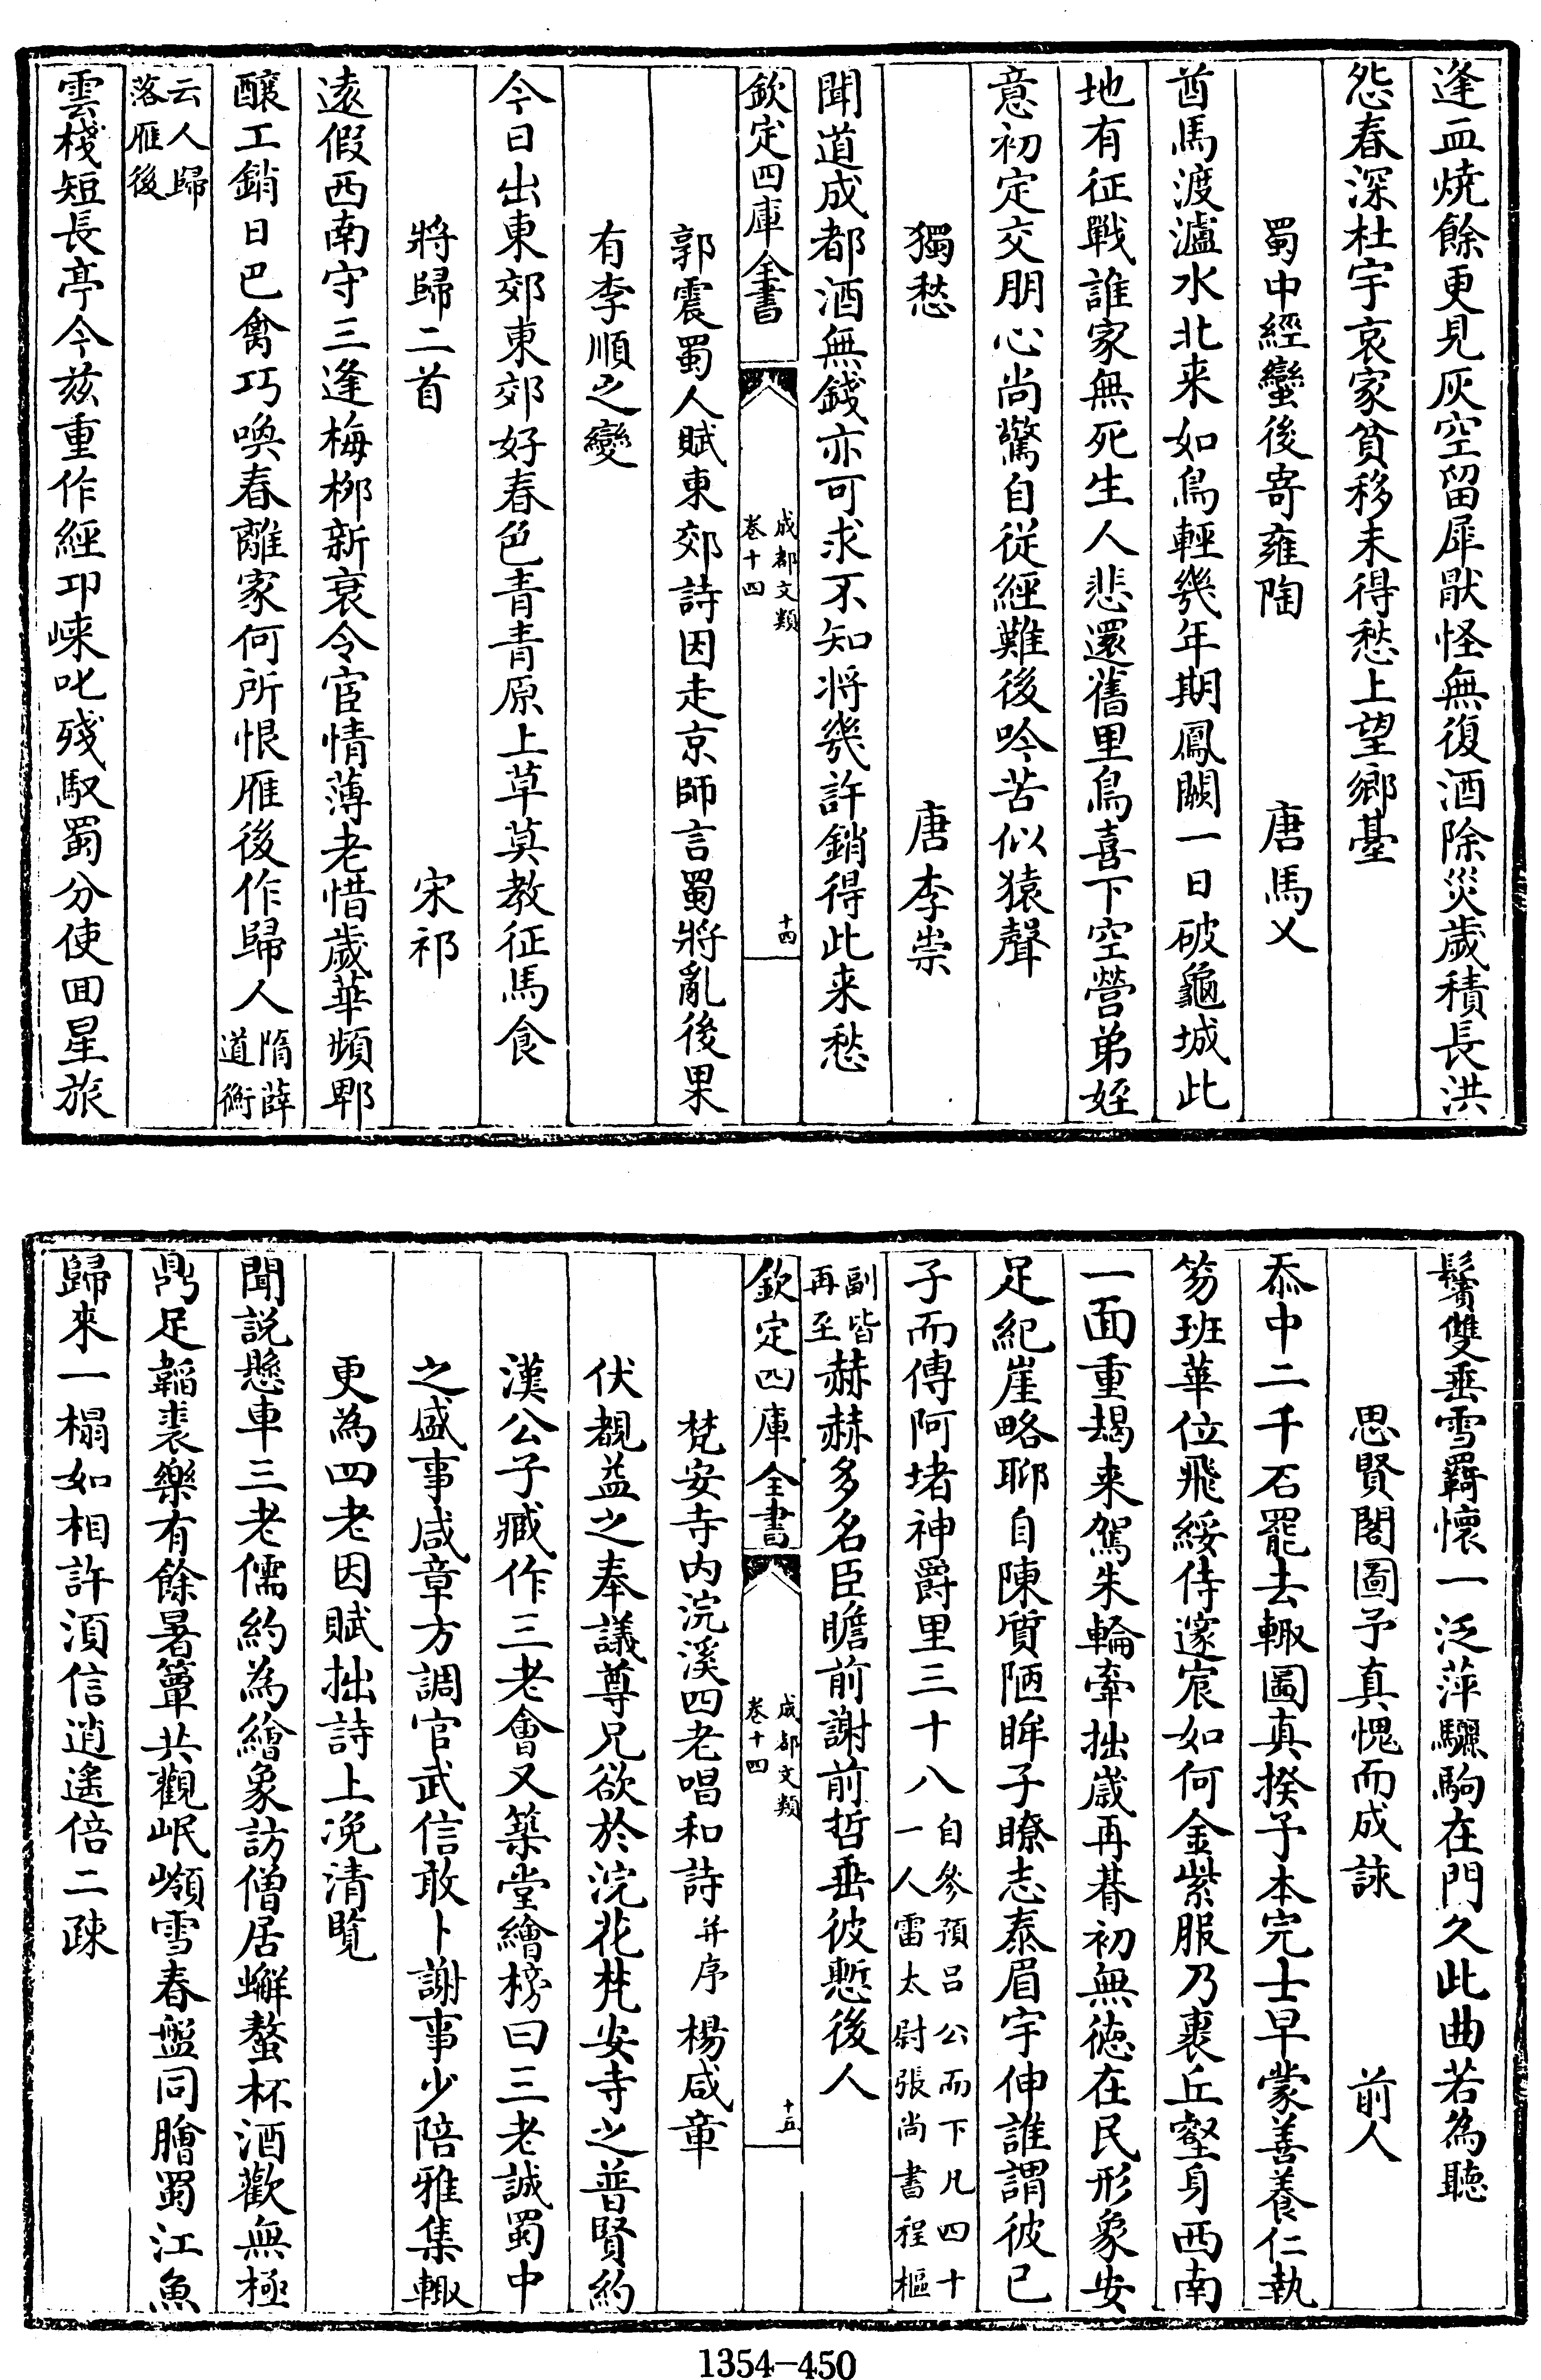 逢血燒餘更見灰空留犀猒怪無復酒除災歲積長洪
怨春深杜宇哀家貧移未得愁上望鄉臺
蜀中經蠻後寄雍陶 唐馬乂
酋馬渡瀘水北来如鳥輕幾年期鳳闕一日破龜城此
地有征戰誰家無死生人悲還舊里鳥喜下空營弟姪
意初定交朋心尚驚自從經難後吟苦似猿聲
獨愁 唐李崇
聞道成都酒無錢亦可求不知将幾許銷得此来愁
欽定四庫全書 成都文類 卷十四 十四
郭震蜀人賦東郊詩因走京師言蜀將亂後果
有李順之變
今日出東郊東郊好春色青青原上草莫教征馬食
將歸二首 宋祁
遠假西南守三逢梅栁新衰令宦情薄老惜歲華頻郫
釀工銷日巴禽巧喚春離家何所恨雁後作歸人 隋薛道衡
云人歸落雁後
雲棧短長亭今兹重作經卭崍叱殘馭蜀分使囬星旅
鬢雙垂雪羇懷一泛萍驪駒在門久此曲若為聽
思賢閣圖予真愧而成詠 前人
忝中二千石罷去輙圖真揆予本完士早蒙善養仁執
笏班華位飛綏侍邃宸如何金紫服乃裹丘壑身西南
一面重朅来駕朱輪牽拙歲再朞初無徳在民形象安
足紀崖略聊自陳質陋眸子瞭志泰眉宇伸誰謂彼已
子而傳阿堵神爵里三十八 自參預吕公而下凡四十一人雷太尉張尚書程樞
副皆再至 赫赫多名臣瞻前謝前哲垂彼慙後人
欽定四庫全書 成都文類 卷十四 十五
梵安寺内浣溪四老唱和詩 并序 楊咸章
伏覩益之奉議尊兄欲於浣花梵安寺之普賢約
漢公子臧作三老會又築堂繪榜曰三老誠蜀中
之盛事咸章方調官武信敢卜謝事少陪雅集輙
更為四老因賦拙詩上浼清覽
聞説懸車三老儒約為繪象訪僧居蠏螯杯酒歡無極
鼎足韜裘樂有餘暑簟共觀岷嶺雪春盤同膾蜀江魚
歸來一榻如相許湏信逍遙倍二疎
1354-450